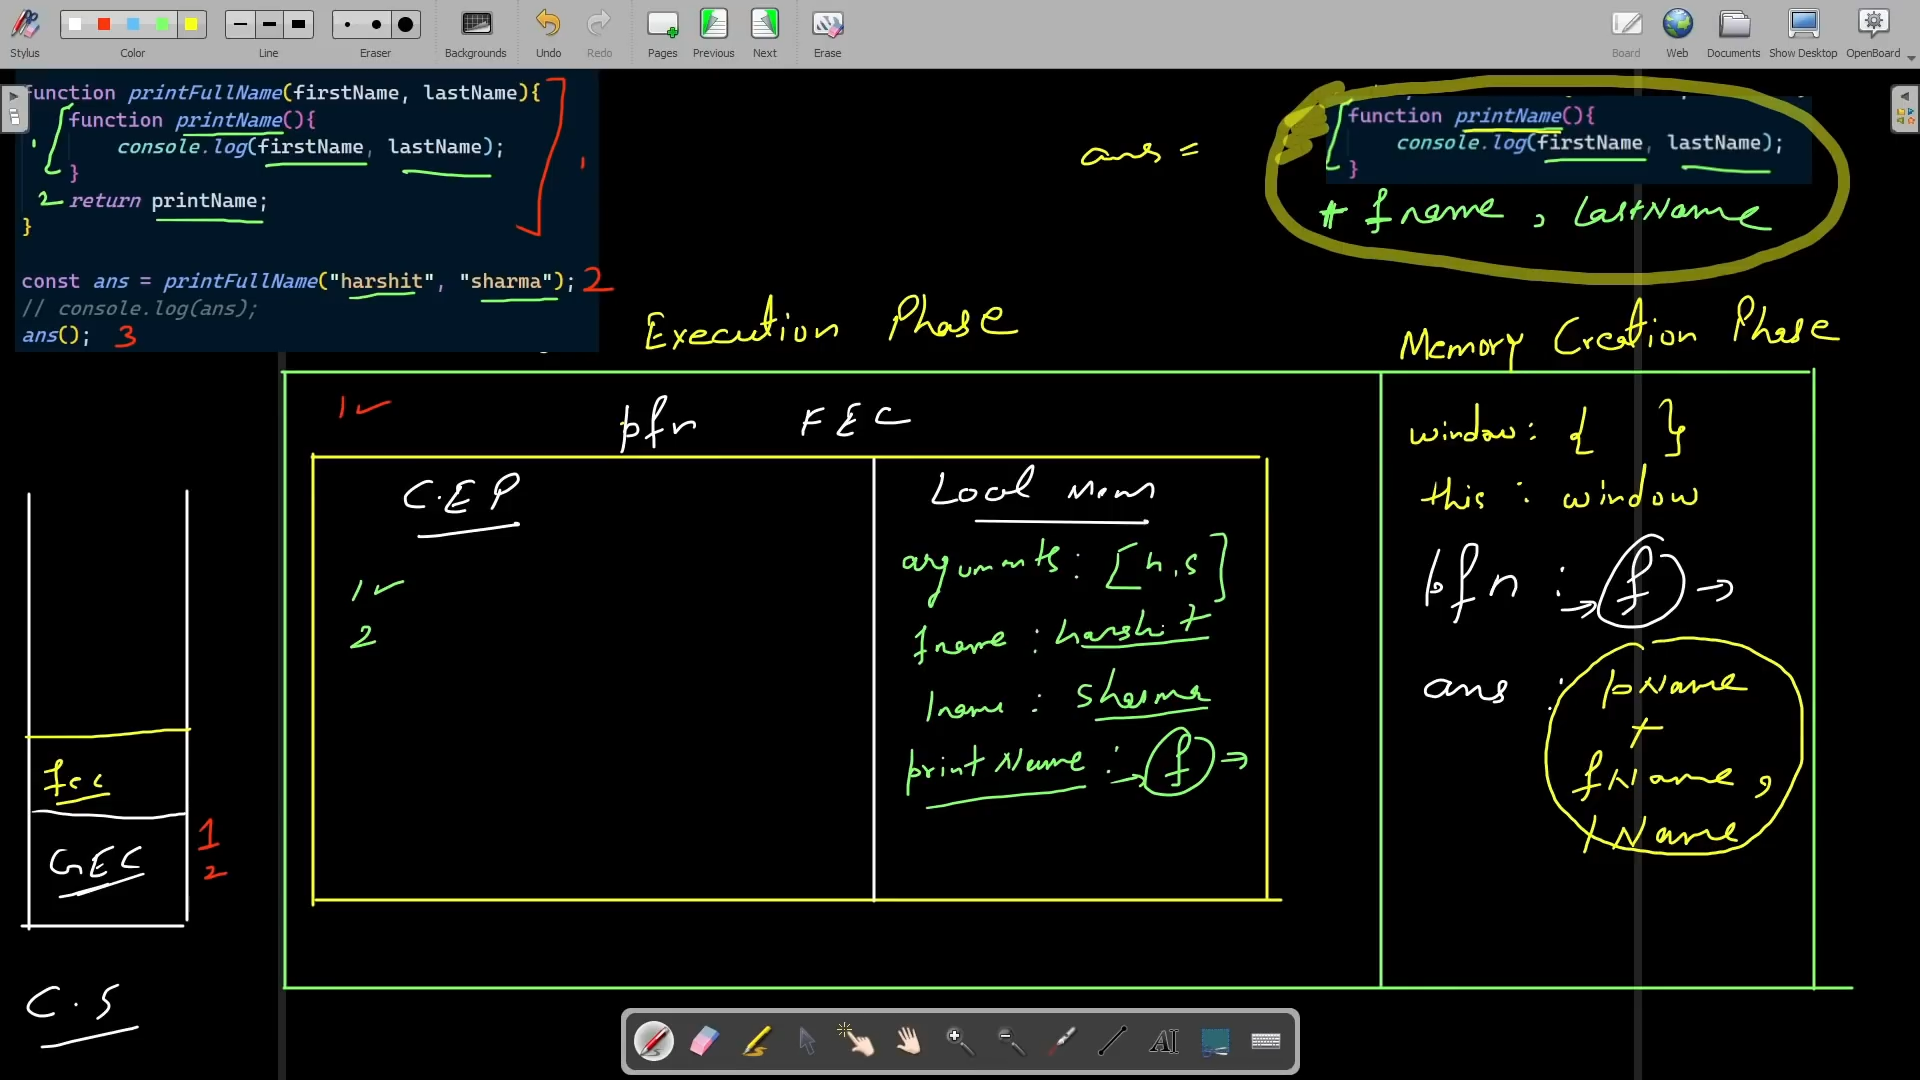 Stylus Color Line Eraser Backgrounds Undo Redo Pages Previous Next Erase Board Web Documents Show Desktop OpenBoard
function printFullName(firstName, lastName){
1 function printName(){
console.log(firstName, lastName);
}
2 return printName;
}
1
const ans = printFullName("harshit", "sharma"); 2
// console.log(ans);
ans(); 3
ans =
function printName(){
console.log(firstName, lastName);
}
+ fname , lastName
Execution Phase
Memory Creation Phase
1 ✓
pfn FEC
C.E.P
1 ✓
2
Local Mem
arguments : [h, s]
fname : harshit
lname : sharma
printName : → f →
window : { }
this : window
pfn : → f →
ans : pName
+
fName ,
lName
fec
GEC
1
2
C.S
AI